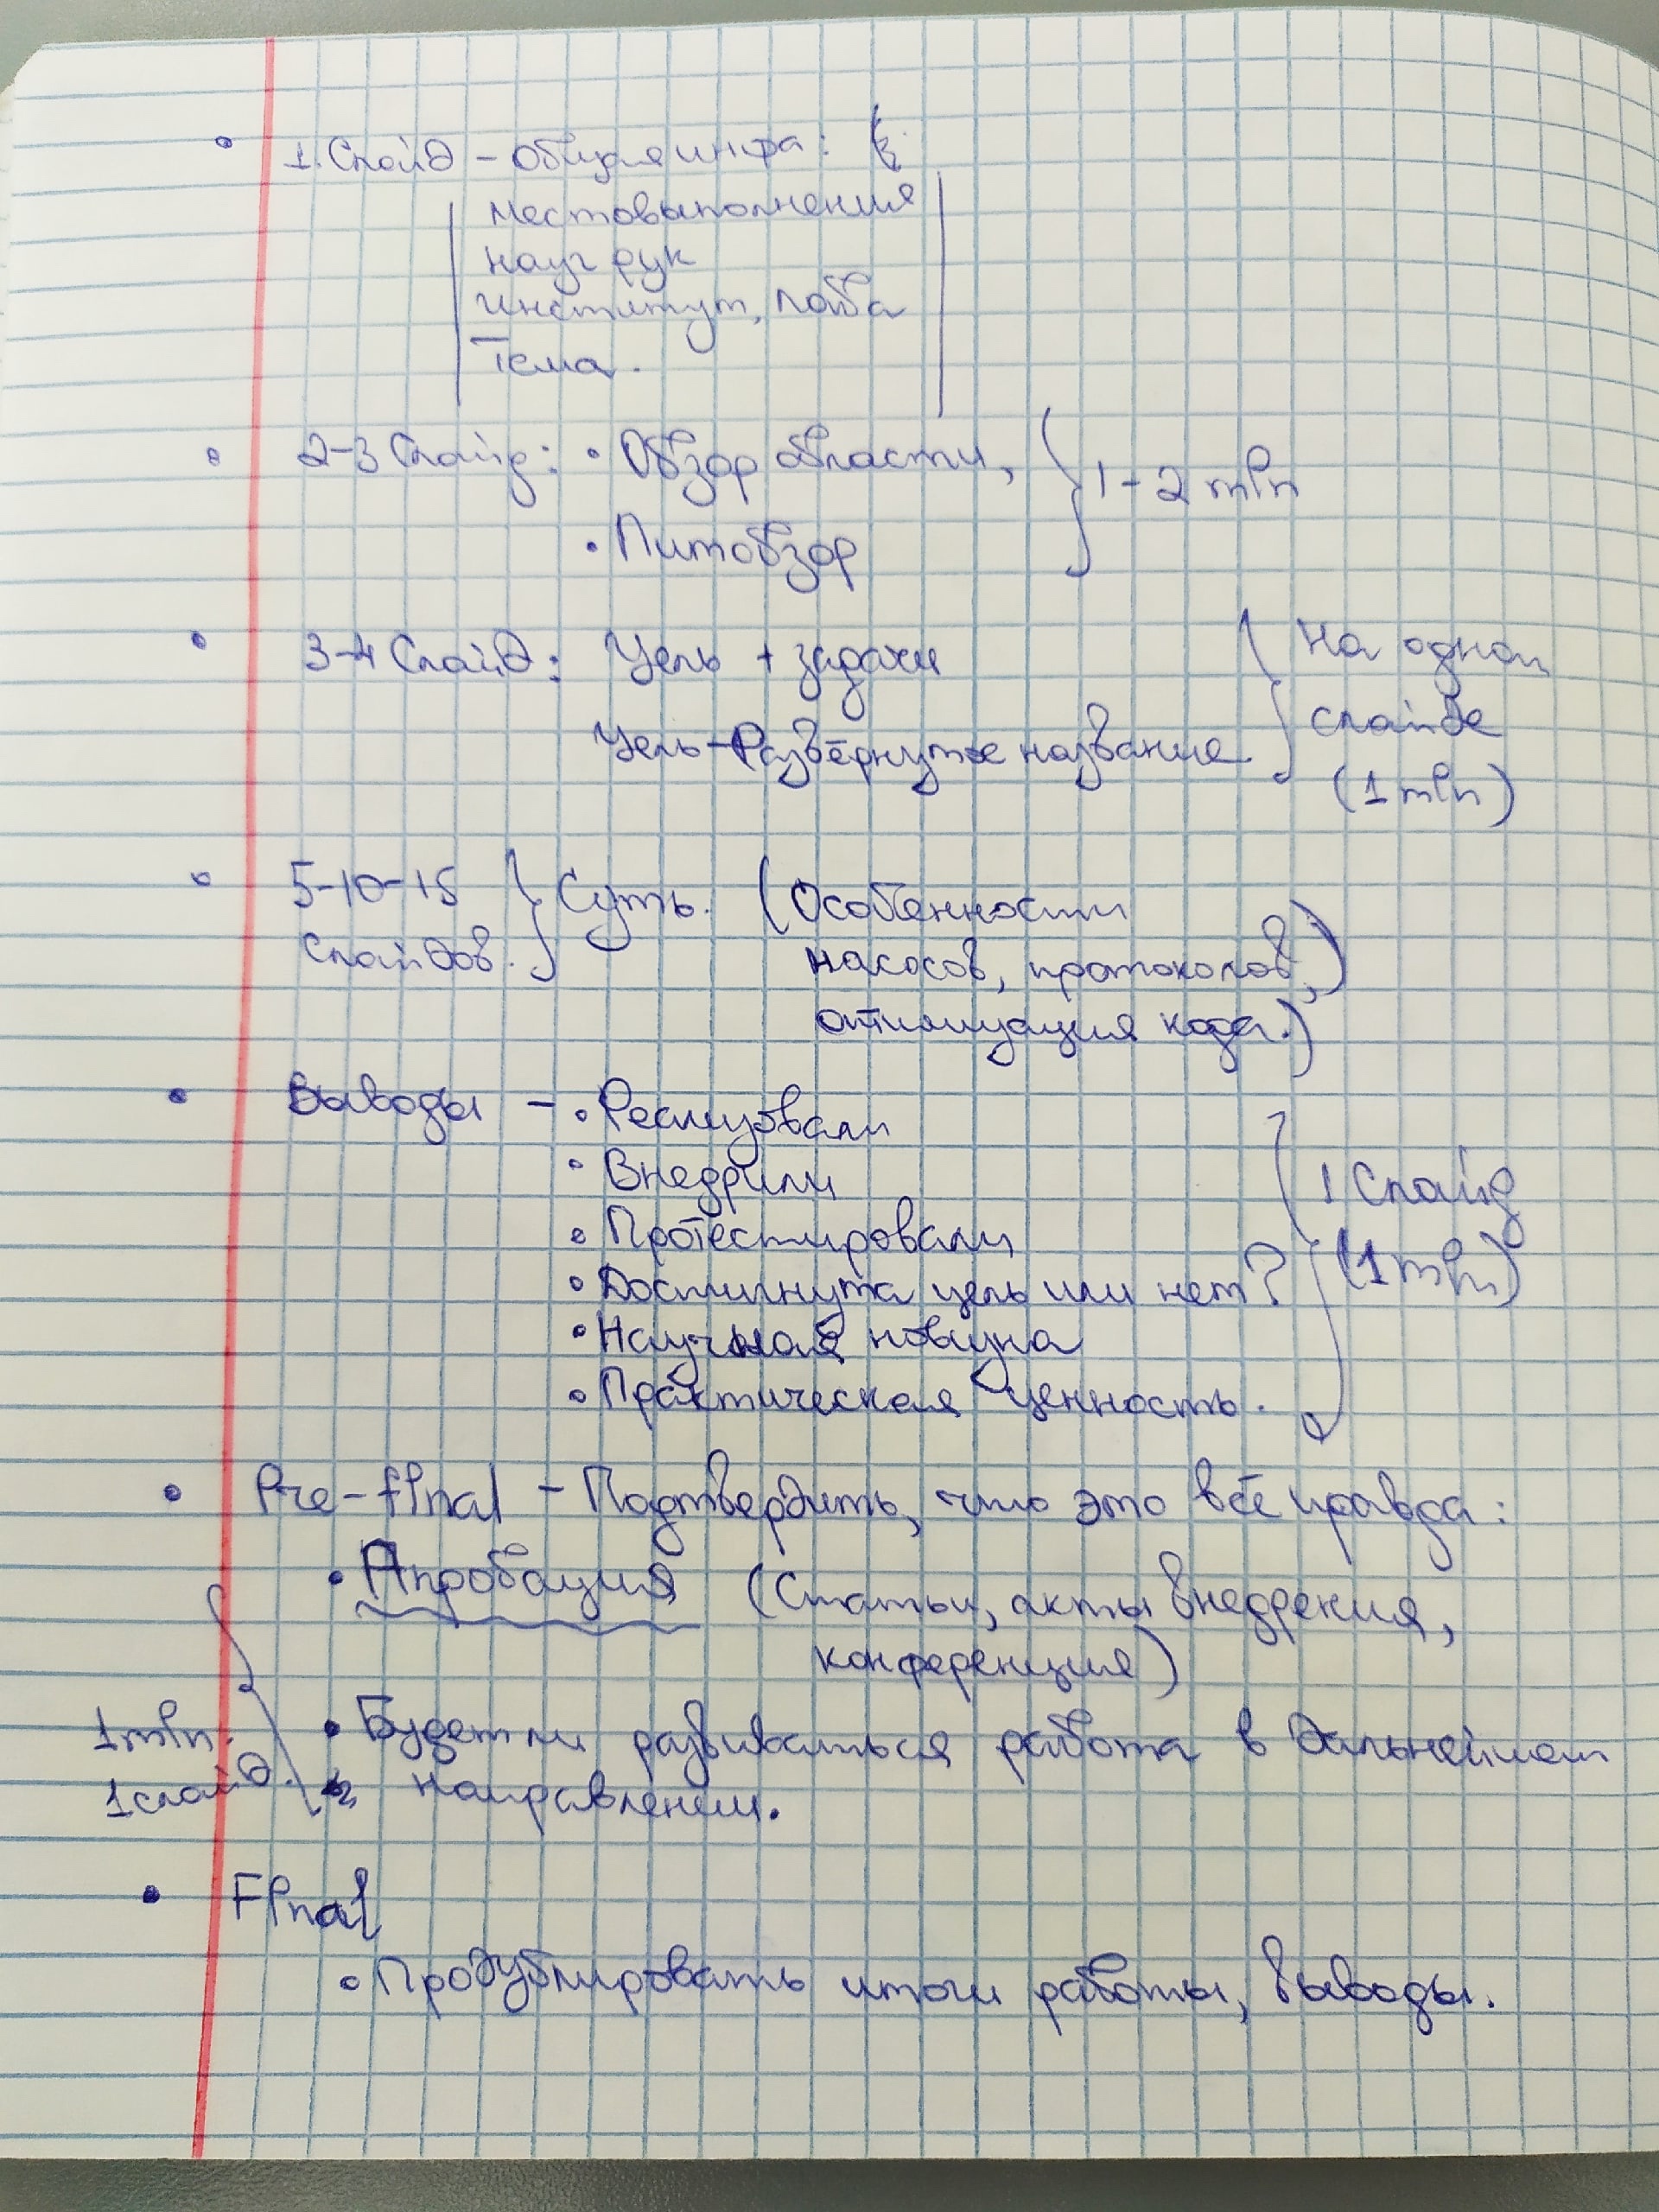 • 1. Слайд – Общая инфа:
место выполнения
науч рук
институт, лаба
Тема.
• 2-3 Слайд: • Обзор области, } 1-2 min
• Литобзор
• 3-4 Слайд: Цель + задачи } На одном
Цель – Развёрнутое название. слайде
(1 min)
• 5-10-15 } Суть. (Особенности
слайдов. насосов, протоколов,)
оптимизация кода.)
• Выводы – • Реализовали
• Внедрили } 1 Слайд
• Протестировали (1 min)
• Достигнута цель или нет?
• Научная новизна
• Практическая ценность.
• Pre-final – Подтвердить, что это всё правда:
• Апробация (Статьи, акты внедрения,
конференция)
1 min. • Будет ли развиваться работа в дальнейшем
1 слайд. направлении.
• Final
• Продублировать итоги работы, выводы.